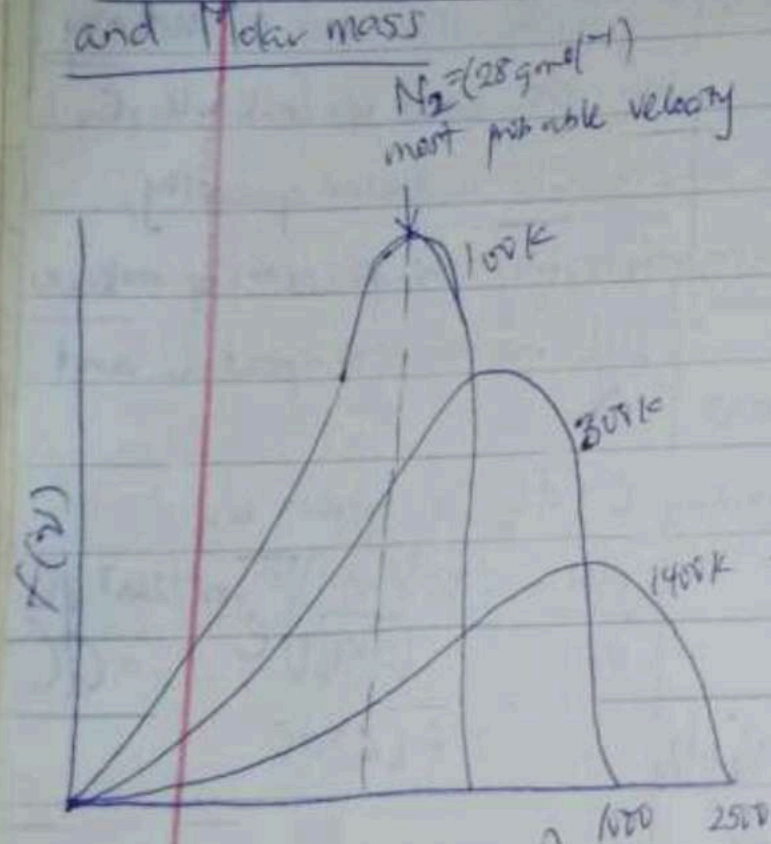 and Molar mass
N₂=(28 gmol⁻¹)
most probable velocity
100K
300K
1400K
f(v)
1000 2500